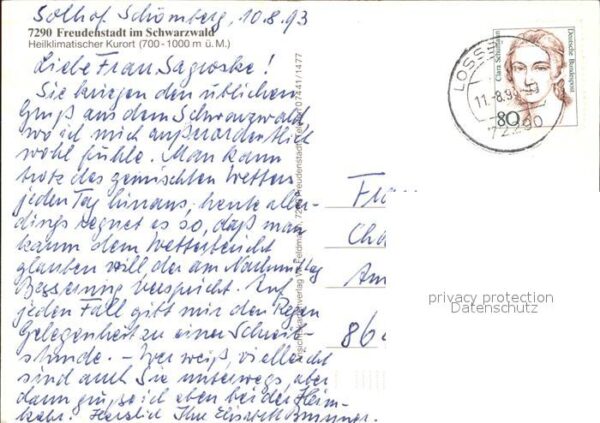 Solhof. Schömberg, 10.8.93
7290 Freudenstadt im Schwarzwald
Heilklimatischer Kurort (700 - 1000 m ü. M.)
Liebe Frau
Sie kriegen den üblichen
Gruß aus dem Schwarzwald,
wo ich mich außerordentlich
wohl fühle. Man kann
trotz des gemischten Wetters
jeden Tag hinaus, heute aller-
dings regnet es so, daß man
kaum dem Wetterbericht
glauben will der am Nachmittag
Besserung verspricht. Auf
jeden Fall gibt mir der Regen
Gelegenheit zu einer Schreib-
stunde. - Wer weiß, vielleicht
sind auch Sie unterwegs, aber
dann
kehr! Herzlich Ihre Elisabeth
07441/1477
Clara Schumann
Deutsche Bundespost
80
LOSSB
11.-8.93
72290
Fra
Am
privacy protection
Datenschutz